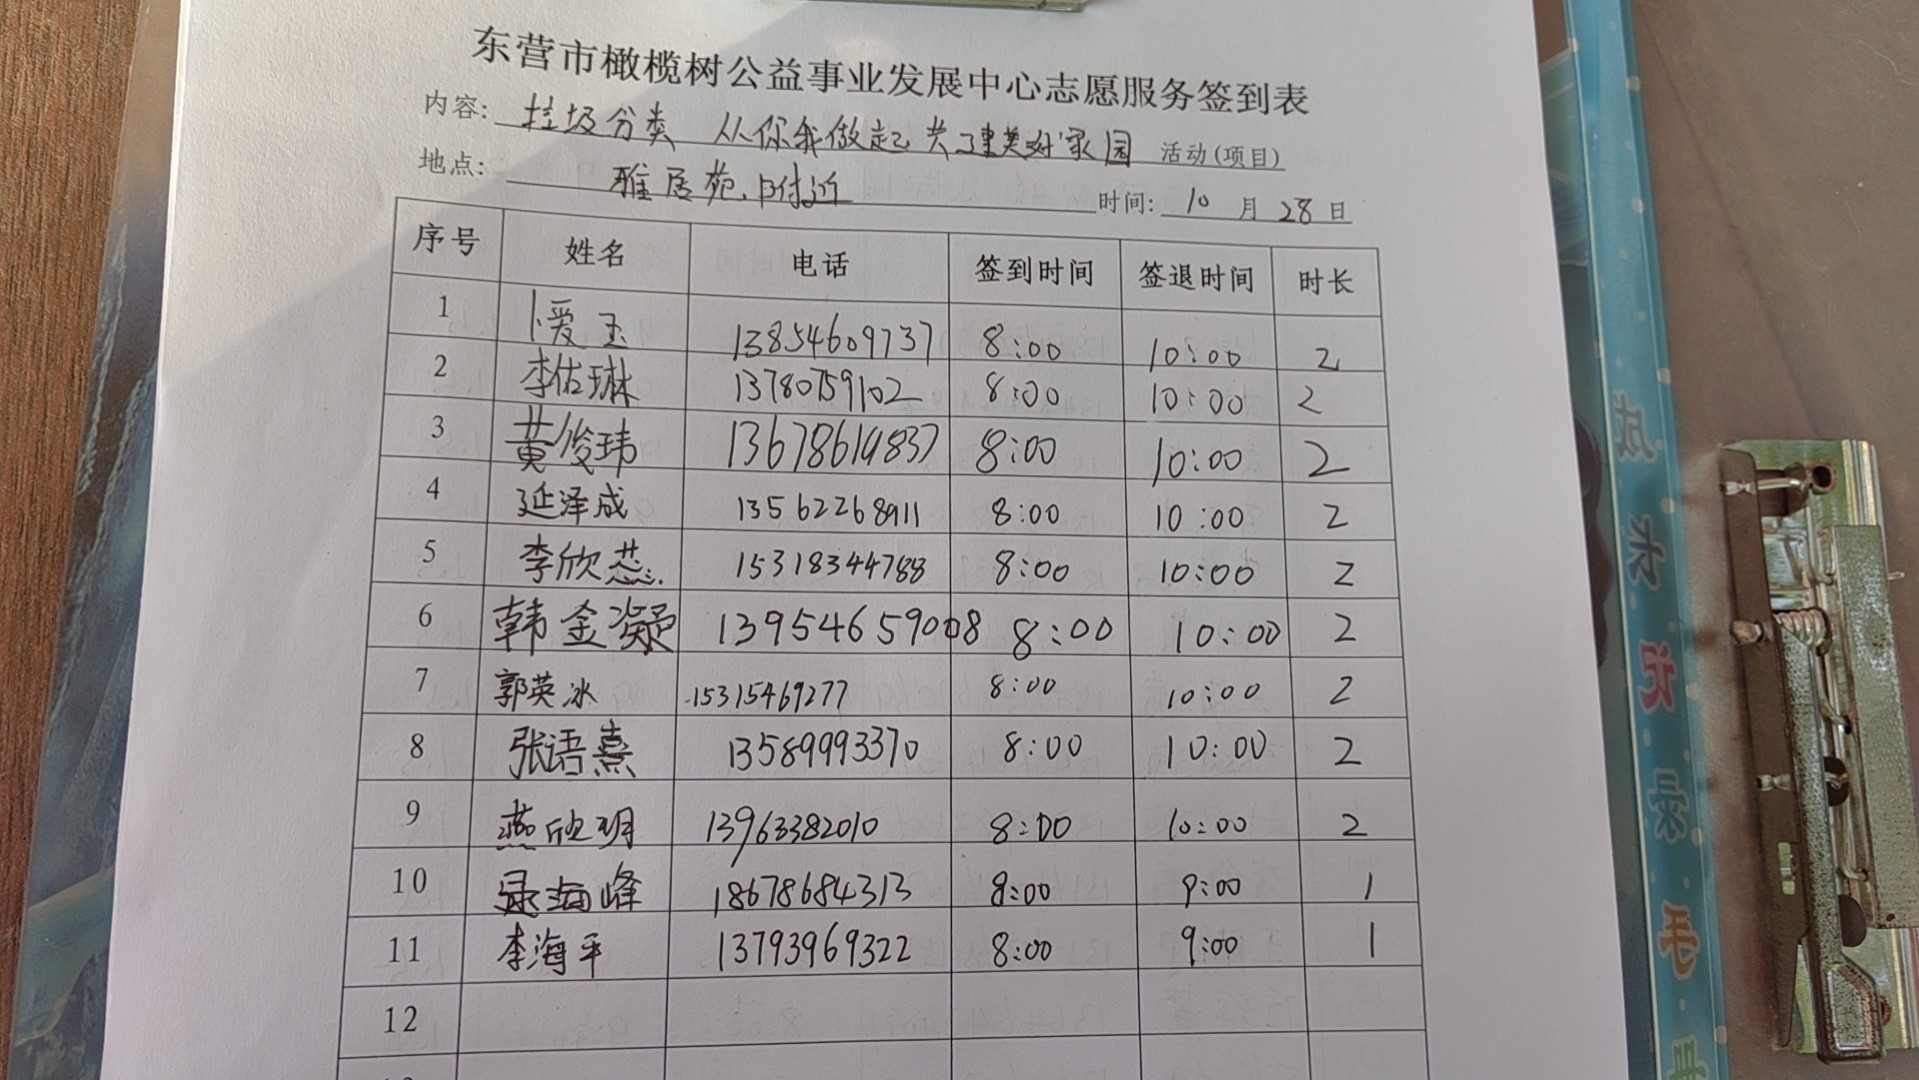 东营市橄榄树公益事业发展中心志愿服务签到表
内容: 垃圾分类 从你我做起 共建美好家园 活动(项目)
地点: 雅居苑附近 时间: 10 月 28 日
序号 姓名 电话 签到时间 签退时间 时长
1 卜爱玉 13854609737 8:00 10:00 2
2 李佑琳 13780759102 8:00 10:00 2
3 黄俊玮 13678614837 8:00 10:00 2
4 延泽成 13562268911 8:00 10:00 2
5 李欣芯 15318344788 8:00 10:00 2
6 韩金凝 13954659008 8:00 10:00 2
7 郭英冰 15315469277 8:00 10:00 2
8 张语熹 13589993370 8:00 10:00 2
9 燕欣玥 13963382010 8:00 10:00 2
10 海峰 18678684313 8:00 9:00 1
11 李海平 13793969322 8:00 9:00 1
12
成长记录手册